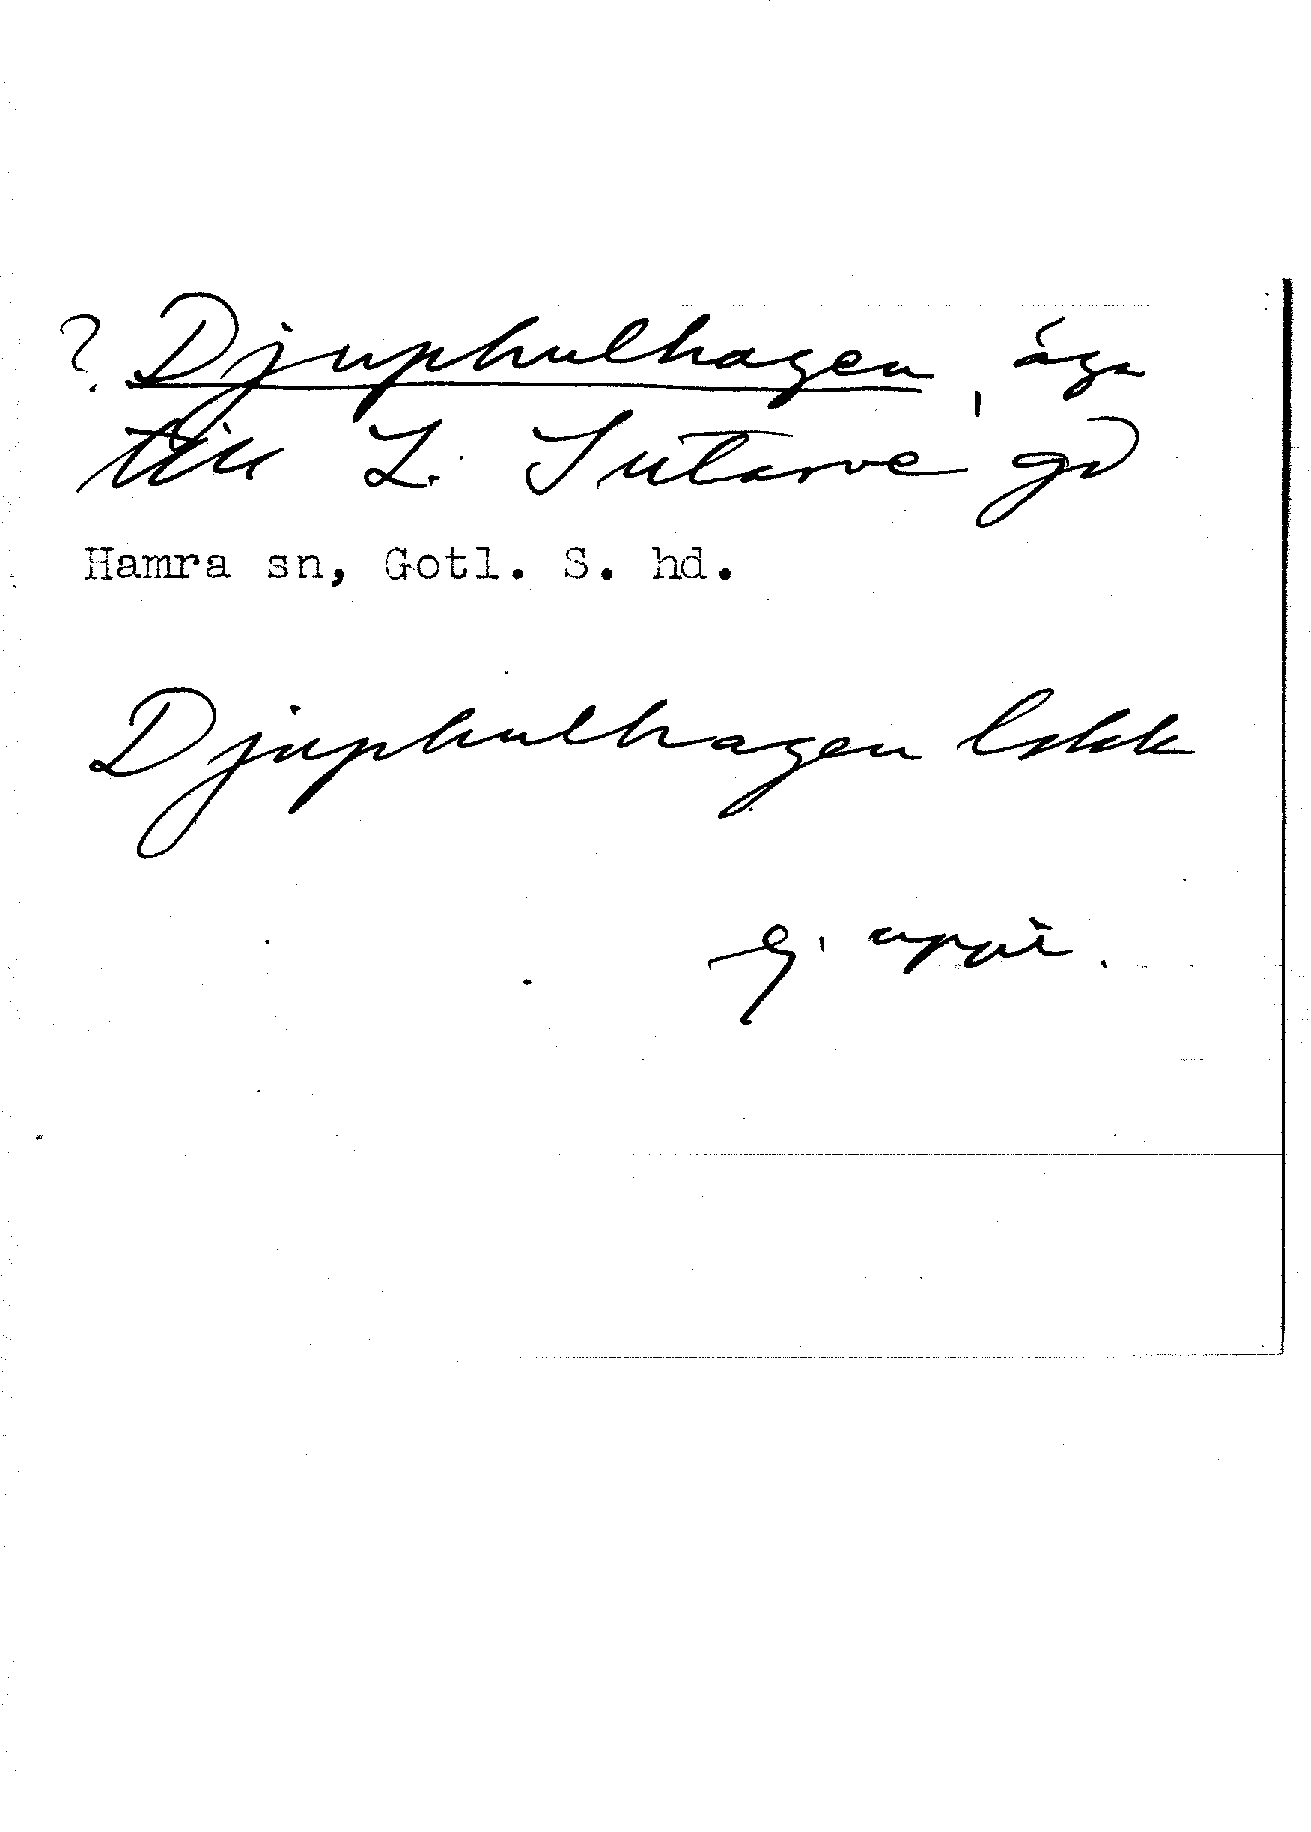 ? Djuphulhagen, äga
till L. Sutarve gd
Hamra sn, Gotl. S. hd.
Djuphulhagen lskk
Ej uppt.